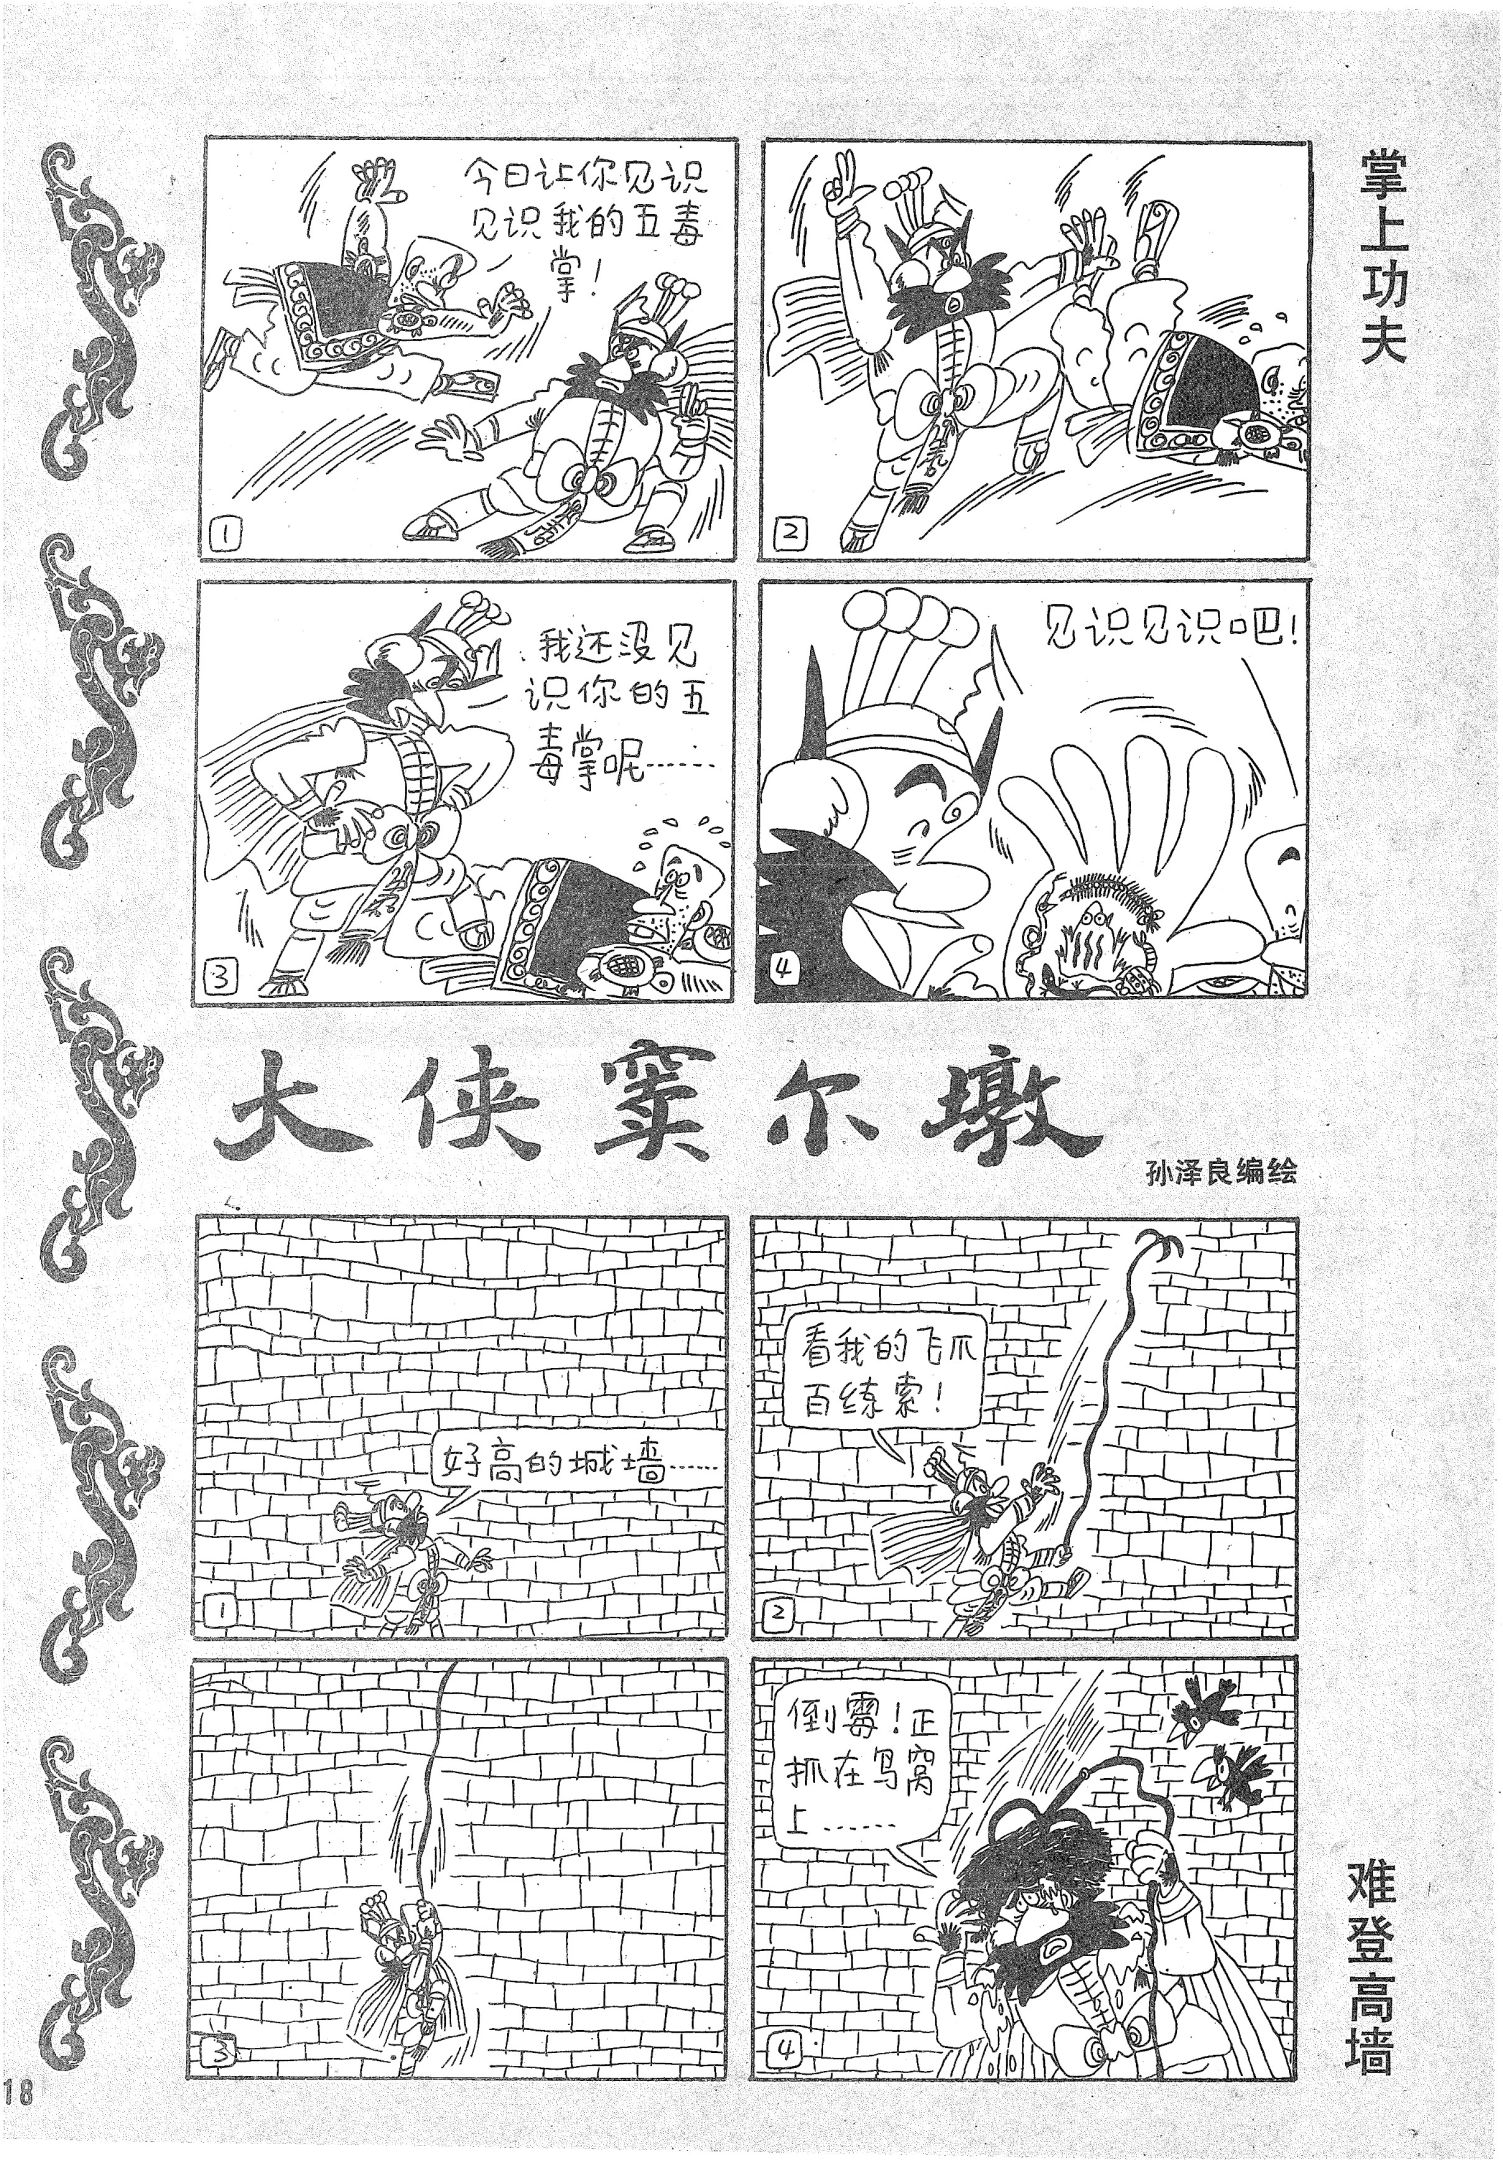 掌上功夫
今日让你见识
见识我的五毒
掌！
1
2
我还没见
识你的五
毒掌呢……
3
见识见识吧！
4
大侠窦尔墩
孙泽良编绘
好高的城墙……
1
看我的飞爪
百练索！
2
3
倒霉！正
抓在鸟窝
上……
4
难登高墙
18